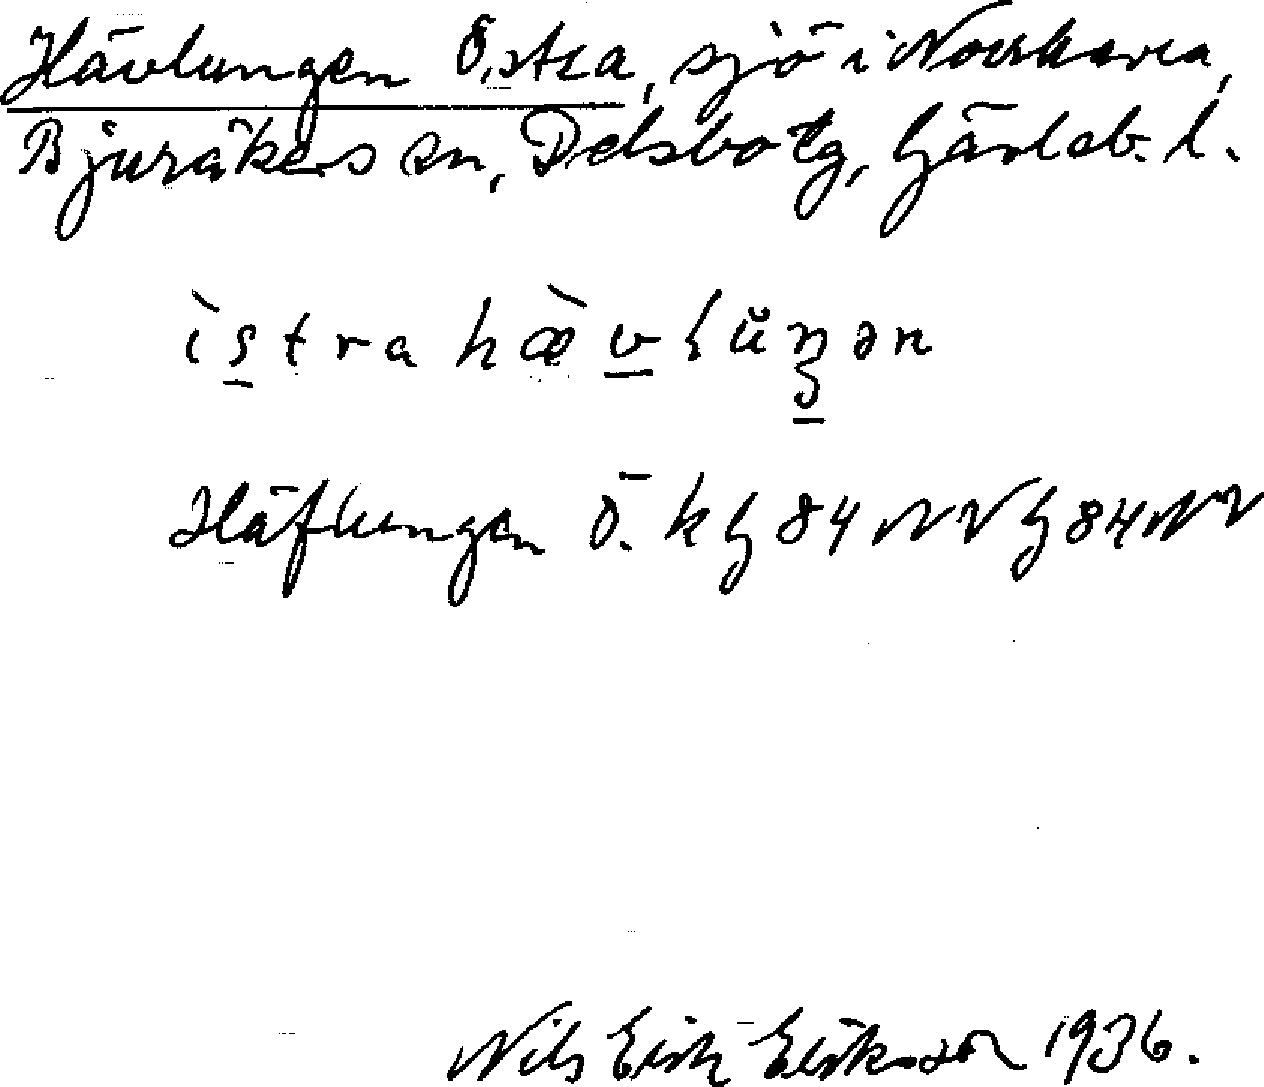 Hävlungen Östra, sjö i Norrhavra,
Bjuråkers sn, Delsbo tg, Gävleb. l.
ìstra hæ̀vlŭŋən
Häflungen Ö. kg 84 NV g 84 NV
Nils Erik Eriksson 1936.